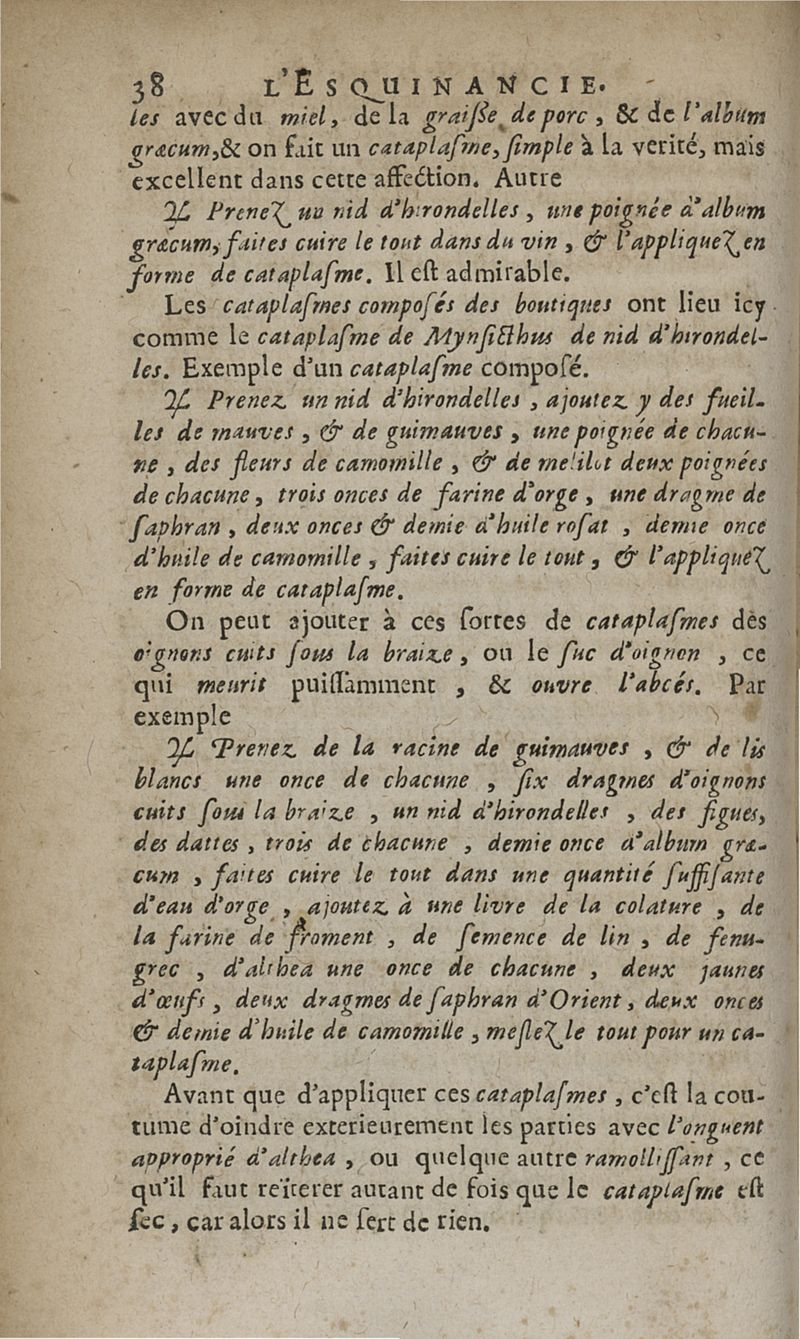 38 L'ESQUINANCIE.
les avec du miel, de la graiſſe de porc, & de l'album
græcum,& on fait un cataplaſme, ſimple à la verité, mais
excellent dans cette affection. Autre
♃ Prenez un nid d'hirondelles, une poignée d'album
græcum, faites cuire le tout dans du vin, & l'appliquez en
forme de cataplaſme. Il eſt admirable.
Les cataplaſmes compoſés des boutiques ont lieu icy
comme le cataplaſme de Mynſicthus de nid d'hirondel-
les. Exemple d'un cataplaſme compoſé.
♃ Prenez un nid d'hirondelles, ajoutez y des fueil-
les de mauves, & de guimauves, une poignée de chacu-
ne, des fleurs de camomille, & de melilot deux poignées
de chacune, trois onces de farine d'orge, une dragme de
ſaphran, deux onces & demie d'huile roſat, demie once
d'huile de camomille, faites cuire le tout, & l'appliquéz
en forme de cataplaſme.
On peut ajouter à ces ſortes de cataplaſmes dès
oignons cuits ſous la braize, ou le ſuc d'oignon, ce
qui meurit puiſſamment, & ouvre l'abcés. Par
exemple
♃ Prenez de la racine de guimauves, & de lis
blancs une once de chacune, ſix dragmes d'oignons
cuits ſous la braize, un nid d'hirondelles, des figues,
des dattes, trois de chacune, demie once d'album græ-
cum, faites cuire le tout dans une quantité ſuffiſante
d'eau d'orge, ajoutez à une livre de la colature, de
la farine de froment, de ſemence de lin, de fenu-
grec, d'althea une once de chacune, deux jaunes
d'œufs, deux dragmes de ſaphran d'Orient, deux onces
& demie d'huile de camomille, meſlez le tout pour un ca-
taplaſme.
Avant que d'appliquer ces cataplaſmes, c'eſt la cou-
tume d'oindre exterieurement les parties avec l'onguent
approprié d'althea, ou quelque autre ramolliſſant, ce
qu'il faut reïterer autant de fois que le cataplaſme eſt
ſec, car alors il ne ſert de rien.